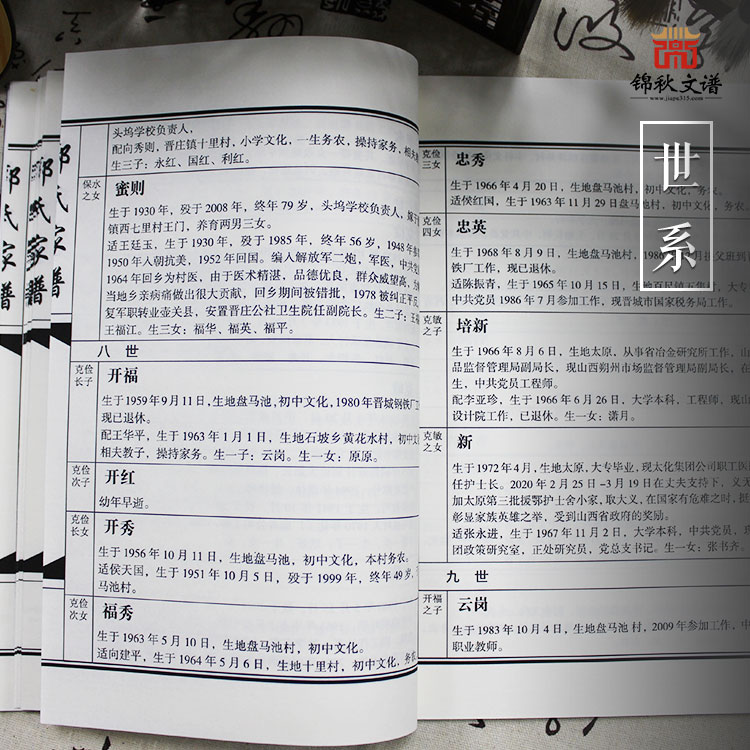 锦秋文谱
www.jiapu315.com
世系
郭氏家谱
头坞学校负责人，
配向秀则，晋庄镇十里村，小学文化，一生务农，操持家务，相夫
生三子：永红、国红、利红。
保水
之女
蜜则
生于1930年，殁于2008年，终年79岁，头坞学校负责人，
镇西七里村王门，养育两男三女。
适王廷玉，生于1930年，殁于1985年，终年56岁，1948年
1950年入朝抗美，1952年回国。编入解放军二炮，军医，中共党
1964年回乡为村医，由于医术精湛，品德优良，群众威望高，
当地乡亲病痛做出很大贡献，回乡期间被错批，1978被纠正平反，
复军职转业壶关县，安置晋庄公社卫生院任副院长。生二子：王福
王福江。生三女：福华、福英、福平。
八世
克俭
长子
开福
生于1959年9月11日，生地盘马池，初中文化，1980年晋城钢铁厂工
现已退休。
配王华平，生于1963年1月1日，生地石坡乡黄花水村，初中文
相夫教子，操持家务。生一子：云岗。生一女：原原。
克俭
次子
开红
幼年早逝。
克俭
长女
开秀
生于1956年10月11日，生地盘马池，初中文化，本村务农。
适侯天国，生于1951年10月5日，殁于1999年，终年49岁，
马池村。
克俭
次女
福秀
生于1963年5月10日，生地盘马池村，初中文化。
适向建平，生于1964年5月6日，生地十里村，初中文化，务农
克俭
三女
忠秀
生于1966年4月20日，生地盘马池村，初中文化，务农。
适侯红国，生于1963年11月29日盘马池村，初中文化，务农。
克俭
四女
忠英
生于1968年8月9日，生地盘马池村，
月接父班到
铁厂工作，现已退休。
适陈振青，生于1965年10月15日，生地百尺镇五集村，大
中共党员1986年7月参加工作，现晋城市国家税务局工作。
克敏
之子
培新
生于1966年8月6日，生地太原，从事省冶金研究所工作，
品监督管理局副局长，现山西朔州市场监督管理局副局长，在
生、中共党员工程师。
配李亚珍，生于1966年6月26日，大学本科，工程师，现山
设计院工作，已退休。生一女：潇月。
克敏
之女
新
生于1972年4月，生地太原，大专毕业，现太化集团公司职工医
任护士长。2020年2月25日-3月19日在丈夫支持下，义无
加太原第三批援鄂护士舍小家，取大义，在国家有危难之时，挺
彰显家族英雄之举，受到山西省政府的奖励。
适张永进，生于1967年11月2日，大学本科，中共党员，现
团政策研究室，正处研究员，党总支书记。生一女：张书齐。
九世
开福
之子
云岗
生于1983年10月4日，生地盘马池村，2009年参加工作，中
职业教师。